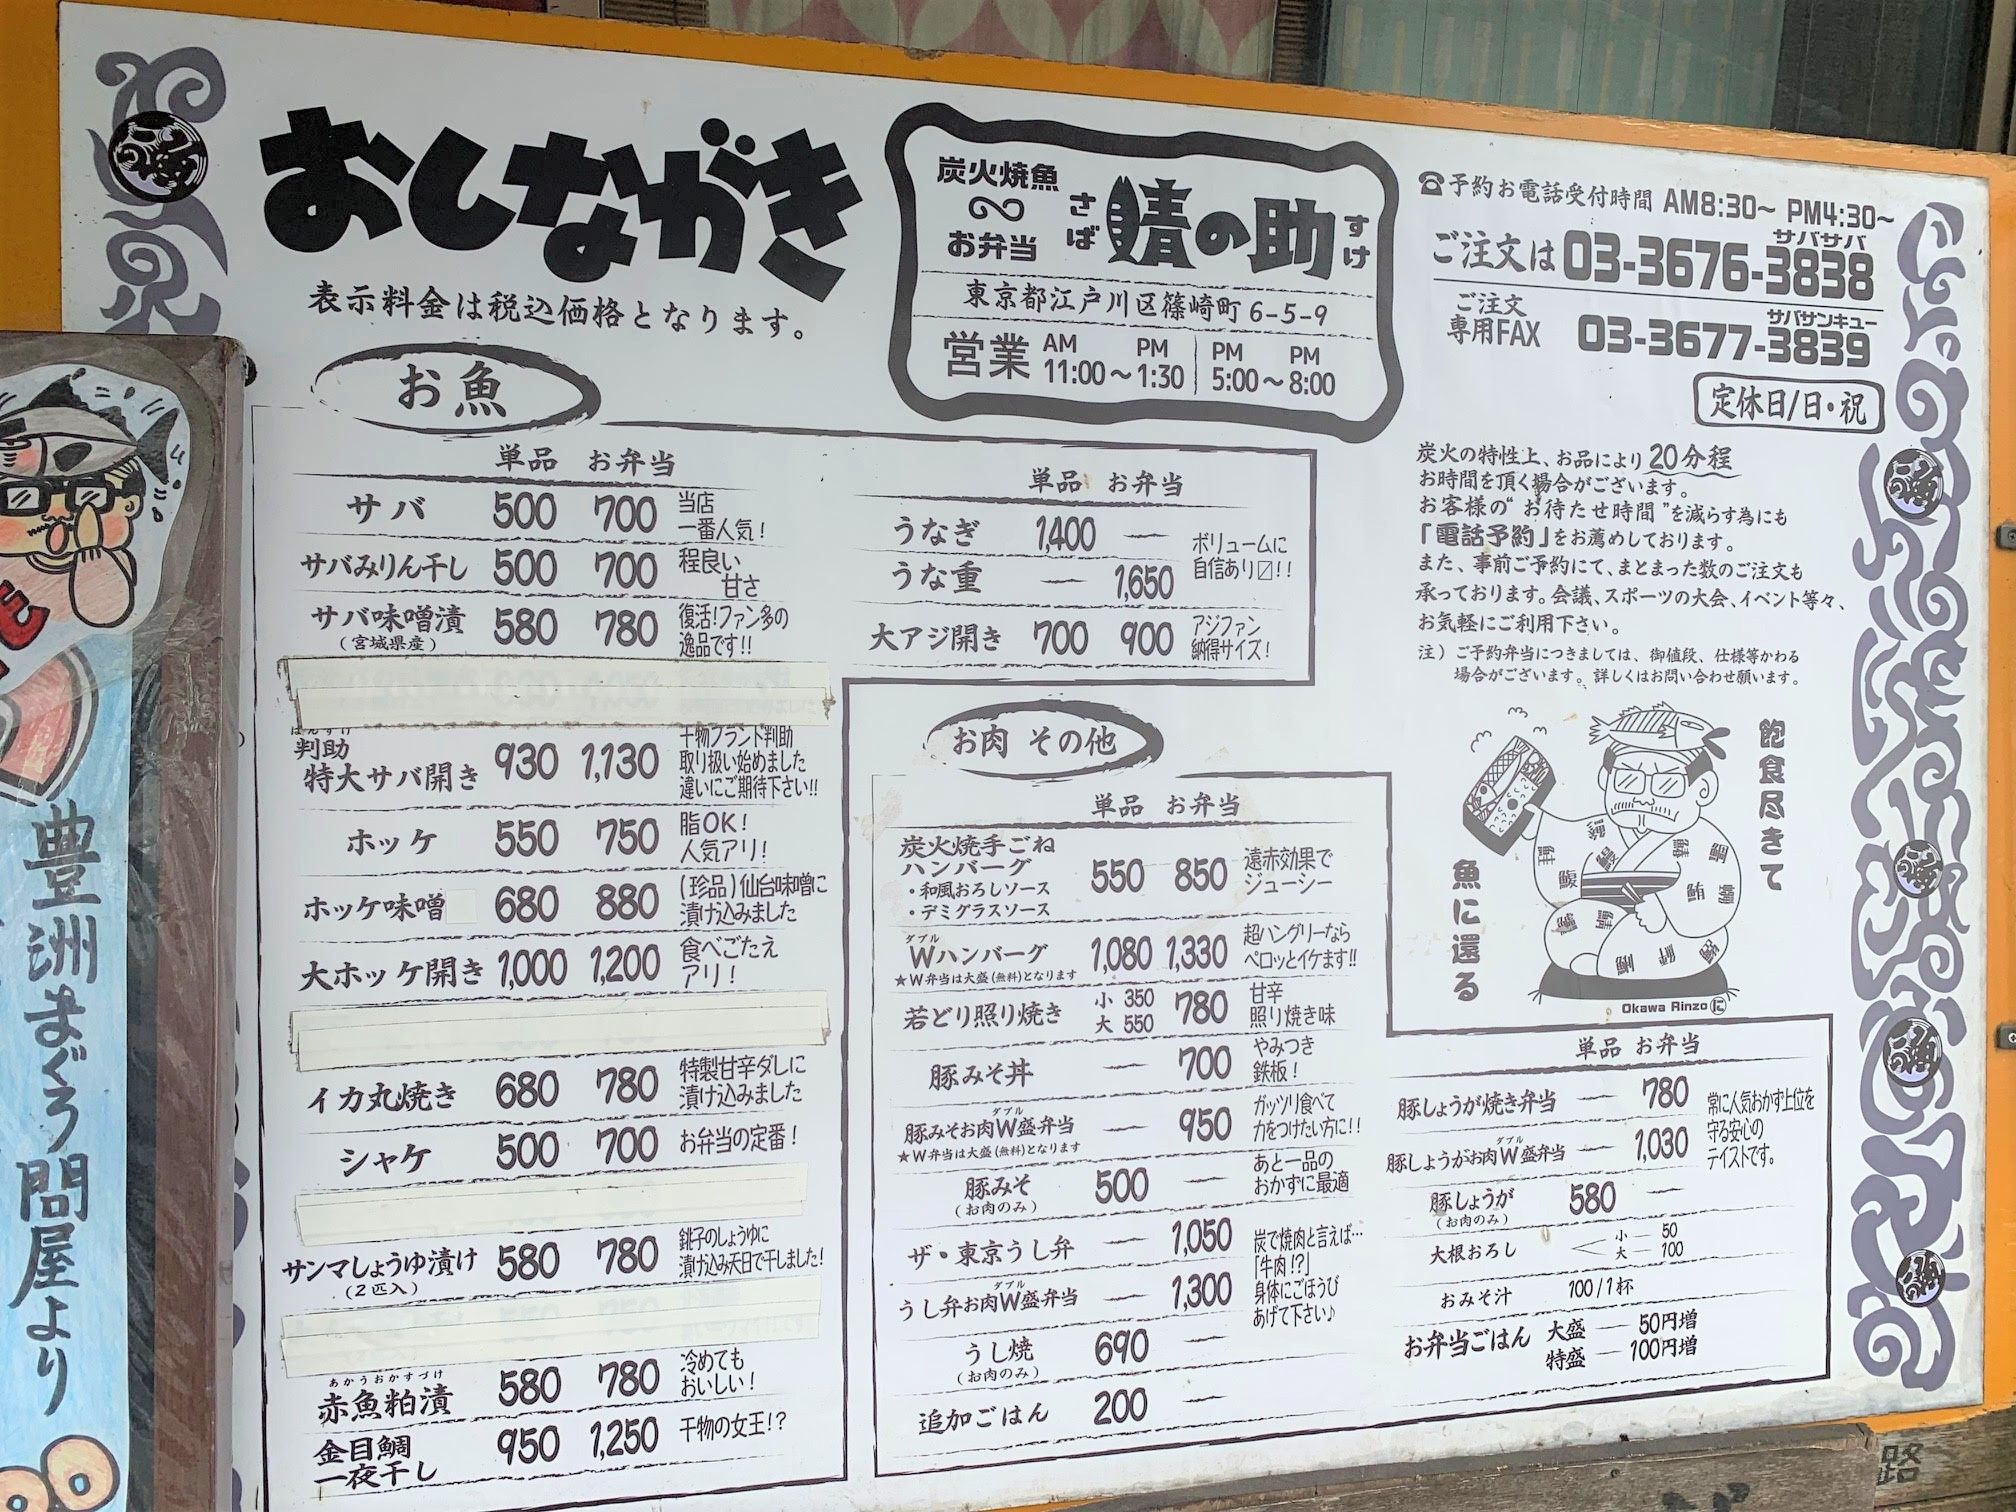 おしながき
表示料金は税込価格となります。
炭火焼魚
お弁当
さば
鯖の助
すけ
東京都江戸川区篠崎町6-5-9
営業 AM 11:00~PM 1:30 PM 5:00~PM 8:00
☎予約お電話受付時間 AM8:30~ PM4:30~
サバサバ
ご注文は 03-3676-3838
サバサンキュー
ご注文
専用FAX 03-3677-3839
定休日/日・祝
炭火の特性上、お品により20分程
お時間を頂く場合がございます。
お客様の“お待たせ時間”を減らす為にも
「電話予約」をお薦めしております。
また、事前ご予約にて、まとまった数のご注文も
承っております。会議、スポーツの大会、イベント等々、
お気軽にご利用下さい。
注) ご予約弁当につきましては、御値段、仕様等かわる
場合がございます。詳しくはお問い合わせ願います。
飽食尽きて
魚に還る
Okawa Rinzo
お魚
単品 お弁当
サバ 500 700 当店
一番人気!
サバみりん干し 500 700 程良い
甘さ
サバ味噌漬 580 780 復活!ファン多の
(宮城県産) 逸品です!!
判助
特大サバ開き 930 1,130 干物ブランド判助
取り扱い始めました
違いにご期待下さい!!
ホッケ 550 750 脂OK!
人気アリ!
ホッケ味噌 680 880 (珍品)仙台味噌に
漬け込みました
大ホッケ開き 1,000 1,200 食べごたえ
アリ!
イカ丸焼き 680 780 特製甘辛ダレに
漬け込みました
シャケ 500 700 お弁当の定番!
サンマしょうゆ漬け 580 780 銚子のしょうゆに
(2匹入) 漬け込み天日で干しました!
あかうおかすづけ
赤魚粕漬 580 780 冷めても
おいしい!
金目鯛
一夜干し 950 1,250 干物の女王!?
単品 お弁当
うなぎ 1,400 —
うな重 — 1,650
ボリュームに
自信あり〼!!
大アジ開き 700 900 アジファン
納得サイズ!
お肉 その他
単品 お弁当
炭火焼手ごね
ハンバーグ 550 850 遠赤効果で
ジューシー
・和風おろしソース
・デミグラスソース
ダブル
Wハンバーグ 1,080 1,330 超ハングリーなら
ペロッとイケます!!
★W弁当は大盛(無料)となります
若どり照り焼き 小 350 大 550 780 甘辛
照り焼き味
豚みそ丼 — 700 やみつき
鉄板!
ダブル
豚みそお肉W盛弁当 — 950 ガッツリ食べて
力をつけたい方に!!
★W弁当は大盛(無料)となります
豚みそ 500 — あと一品の
(お肉のみ) おかずに最適
ザ・東京うし弁 — 1,050 炭で焼肉と言えば…
「牛肉!?」
ダブル
うし弁お肉W盛弁当 — 1,300 身体にごほうび
あげて下さい♪
うし焼 690 —
(お肉のみ)
追加ごはん 200 —
単品 お弁当
豚しょうが焼き弁当 — 780
ダブル
豚しょうがお肉W盛弁当 — 1,030
常に人気おかず上位を
守る安心の
テイストです。
豚しょうが 580 —
(お肉のみ)
大根おろし 小 — 50
大 — 100
おみそ汁 100/1杯
お弁当ごはん 大盛 — 50円増
特盛 — 100円増
豊洲まぐろ問屋より
路